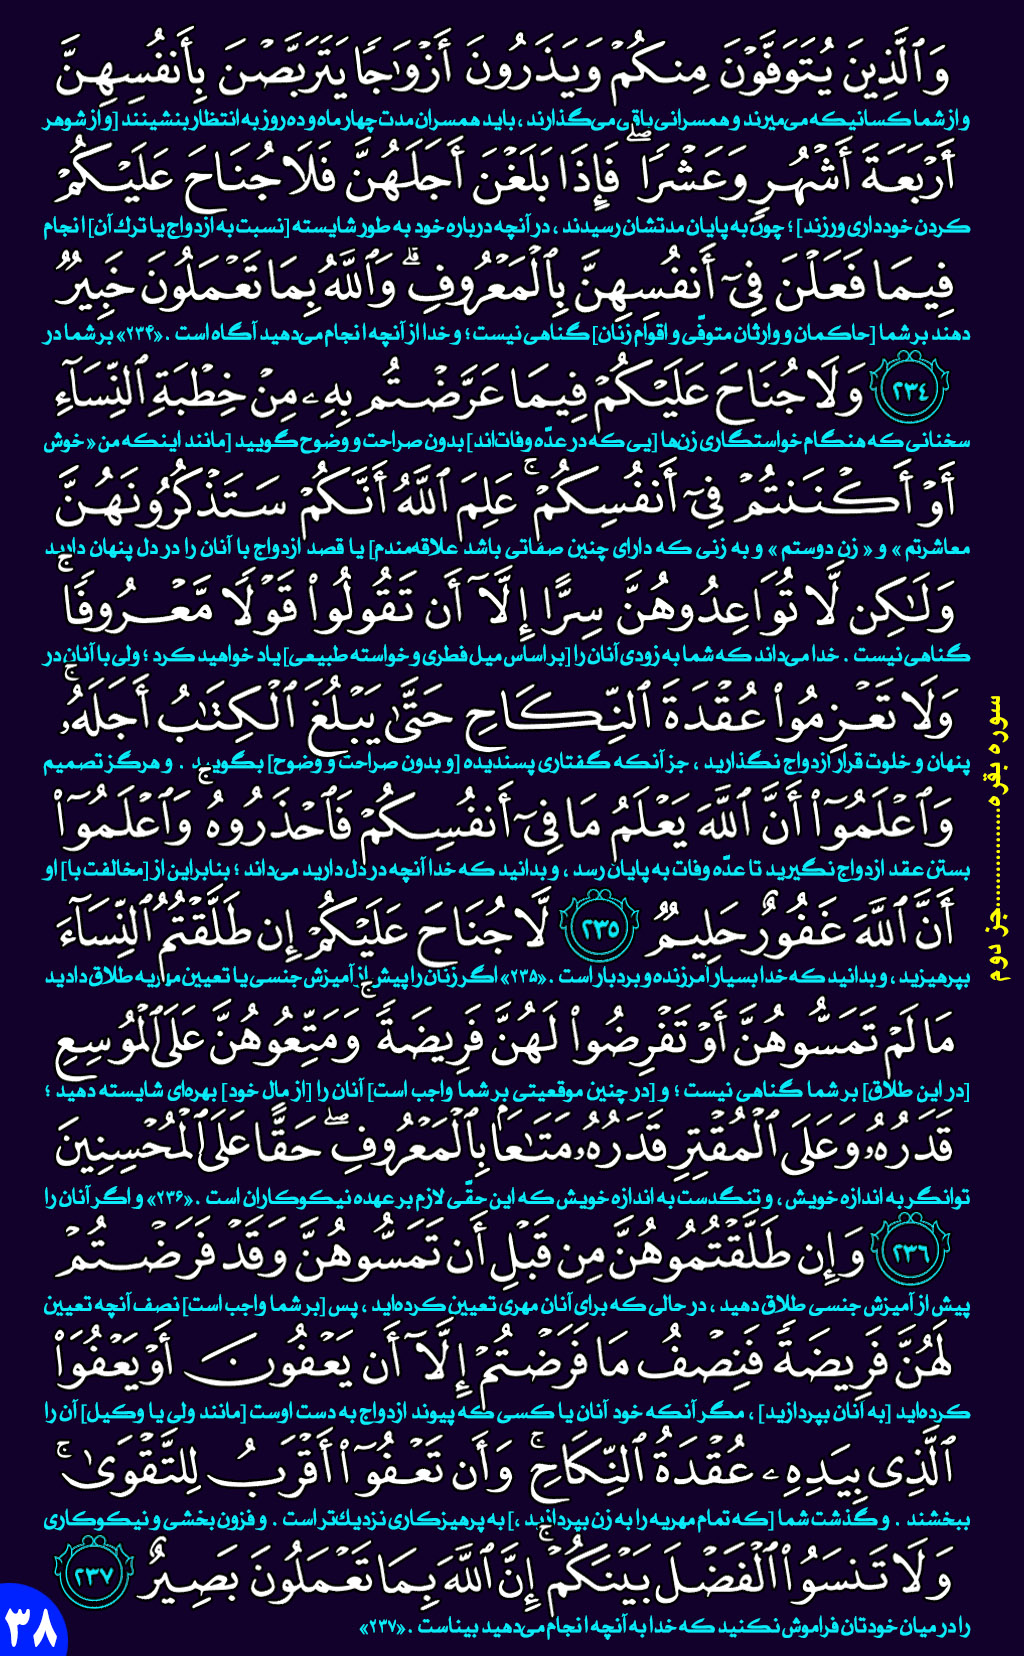 وَٱلَّذِينَ يُتَوَفَّوْنَ مِنكُمْ وَيَذَرُونَ أَزْوَٰجًا يَتَرَبَّصْنَ بِأَنفُسِهِنَّ
و از شما کسانیکه می‌میرند و همسرانی باقی می‌گذارند ، باید همسران مدت چهار ماه و ده روز به انتظار بنشینند [و از شوهر
أَرْبَعَةَ أَشْهُرٍ وَعَشْرًا ۖ فَإِذَا بَلَغْنَ أَجَلَهُنَّ فَلَا جُنَاحَ عَلَيْكُمْ
کردن خودداری ورزند] ؛ چون به پایان مدتشان رسیدند ، در آنچه درباره خود به طور شایسته [نسبت به ازدواج یا ترک آن] انجام
فِيمَا فَعَلْنَ فِىٓ أَنفُسِهِنَّ بِٱلْمَعْرُوفِ ۗ وَٱللَّهُ بِمَا تَعْمَلُونَ خَبِيرٌ
دهند بر شما [حاکمان و وارثان متوفّی و اقوام زنان] گناهی نیست ؛ و خدا از آنچه انجام می‌دهید آگاه است . «۲۳۴» بر شما در
٢٣٤ وَلَا جُنَاحَ عَلَيْكُمْ فِيمَا عَرَّضْتُم بِهِۦ مِنْ خِطْبَةِ ٱلنِّسَآءِ
سخنانی که هنگام خواستگاری زن‌ها [یی که در عدّه وفات‌اند] بدون صراحت و وضوح گویید [مانند اینکه من « خوش
أَوْ أَكْنَنتُمْ فِىٓ أَنفُسِكُمْ ۚ عَلِمَ ٱللَّهُ أَنَّكُمْ سَتَذْكُرُونَهُنَّ
معاشرتم » و « زن دوستم » و به زنی که دارای چنین صفاتی باشد علاقه‌مندم] یا قصد ازدواج با آنان را در دل پنهان دارید
وَلَٰكِن لَّا تُوَاعِدُوهُنَّ سِرًّا إِلَّآ أَن تَقُولُوا۟ قَوْلًا مَّعْرُوفًا ۚ
گناهی نیست . خدا می‌داند که شما به زودی آنان را [بر اساس میل فطری و خواسته طبیعی] یاد خواهید کرد ؛ ولی با آنان در
وَلَا تَعْزِمُوا۟ عُقْدَةَ ٱلنِّكَاحِ حَتَّىٰ يَبْلُغَ ٱلْكِتَٰبُ أَجَلَهُۥ ۚ
پنهان و خلوت قرار ازدواج نگذارید ، جز آنکه گفتاری پسندیده [و بدون صراحت و وضوح] بگویید . و هرگز تصمیم
وَٱعْلَمُوٓا۟ أَنَّ ٱللَّهَ يَعْلَمُ مَا فِىٓ أَنفُسِكُمْ فَٱحْذَرُوهُ ۚ وَٱعْلَمُوٓا۟
بستن عقد ازدواج نگیرید تا عدّه وفات به پایان رسد ، و بدانید که خدا آنچه در دل دارید می‌داند ؛ بنابراین از [مخالفت با] او
أَنَّ ٱللَّهَ غَفُورٌ حَلِيمٌ ٢٣٥ لَّا جُنَاحَ عَلَيْكُمْ إِن طَلَّقْتُمُ ٱلنِّسَآءَ
بپرهیزید ، و بدانید که خدا بسیار آمرزنده و بردبار است . «۲۳۵» اگر زنان را پیش از آمیزش جنسی یا تعیین مهریه طلاق دادید
مَا لَمْ تَمَسُّوهُنَّ أَوْ تَفْرِضُوا۟ لَهُنَّ فَرِيضَةً ۚ وَمَتِّعُوهُنَّ عَلَى ٱلْمُوسِعِ
[در این طلاق] بر شما گناهی نیست ؛ و [در چنین موقعیتی بر شما واجب است] آنان را [از مال خود] بهره‌ای شایسته دهید ؛
قَدَرُهُۥ وَعَلَى ٱلْمُقْتِرِ قَدَرُهُۥ مَتَٰعًۢا بِٱلْمَعْرُوفِ ۖ حَقًّا عَلَى ٱلْمُحْسِنِينَ
توانگر به اندازه خویش ، و تنگدست به اندازه خویش که این حقّی لازم بر عهده نیکوکاران است . «۲۳۶» و اگر آنان را
٢٣٦ وَإِن طَلَّقْتُمُوهُنَّ مِن قَبْلِ أَن تَمَسُّوهُنَّ وَقَدْ فَرَضْتُمْ
پیش از آمیزش جنسی طلاق دهید ، در حالی که برای آنان مهری تعیین کرده‌اید ، پس [بر شما واجب است] نصف آنچه تعیین
لَهُنَّ فَرِيضَةً فَنِصْفُ مَا فَرَضْتُمْ إِلَّآ أَن يَعْفُونَ أَوْ يَعْفُوَا۟
کرده‌اید [به آنان بپردازید] ، مگر آنکه خود آنان یا کسی که پیوند ازدواج به دست اوست [مانند ولی یا وکیل] آن را
ٱلَّذِى بِيَدِهِۦ عُقْدَةُ ٱلنِّكَاحِ ۚ وَأَن تَعْفُوٓا۟ أَقْرَبُ لِلتَّقْوَىٰ ۚ
ببخشند . و گذشت شما [که تمام مهریه را به زن بپردازید ،] به پرهیزکاری نزدیک‌تر است . و فزون بخشی و نیکوکاری
وَلَا تَنسَوُا۟ ٱلْفَضْلَ بَيْنَكُمْ ۚ إِنَّ ٱللَّهَ بِمَا تَعْمَلُونَ بَصِيرٌ ٢٣٧
را در میان خودتان فراموش نکنید که خدا به آنچه انجام می‌دهید بیناست . «۲۳۷»
سوره بقره..................جز دوم
۳۸